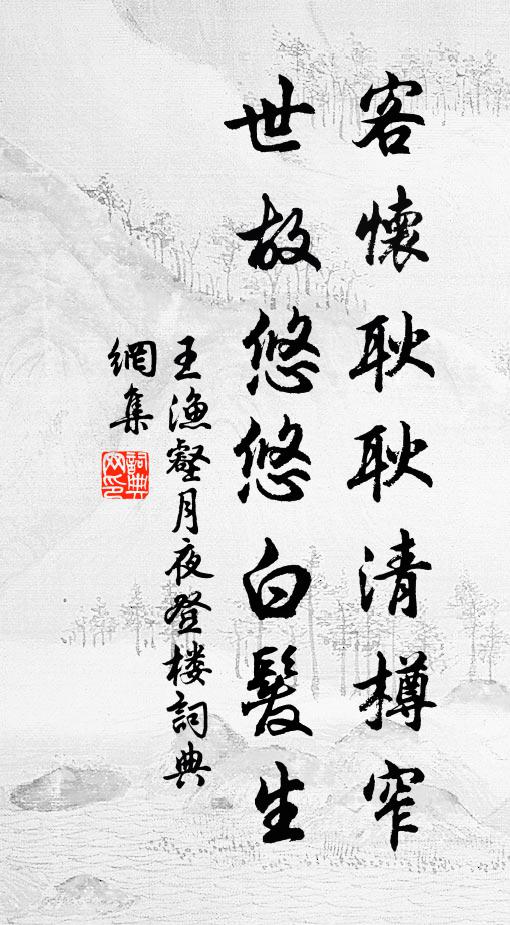 客懷耿耿清樽窄
世故悠悠白髮生
王漁壑月夜登楼詞典
網集
詞典网印